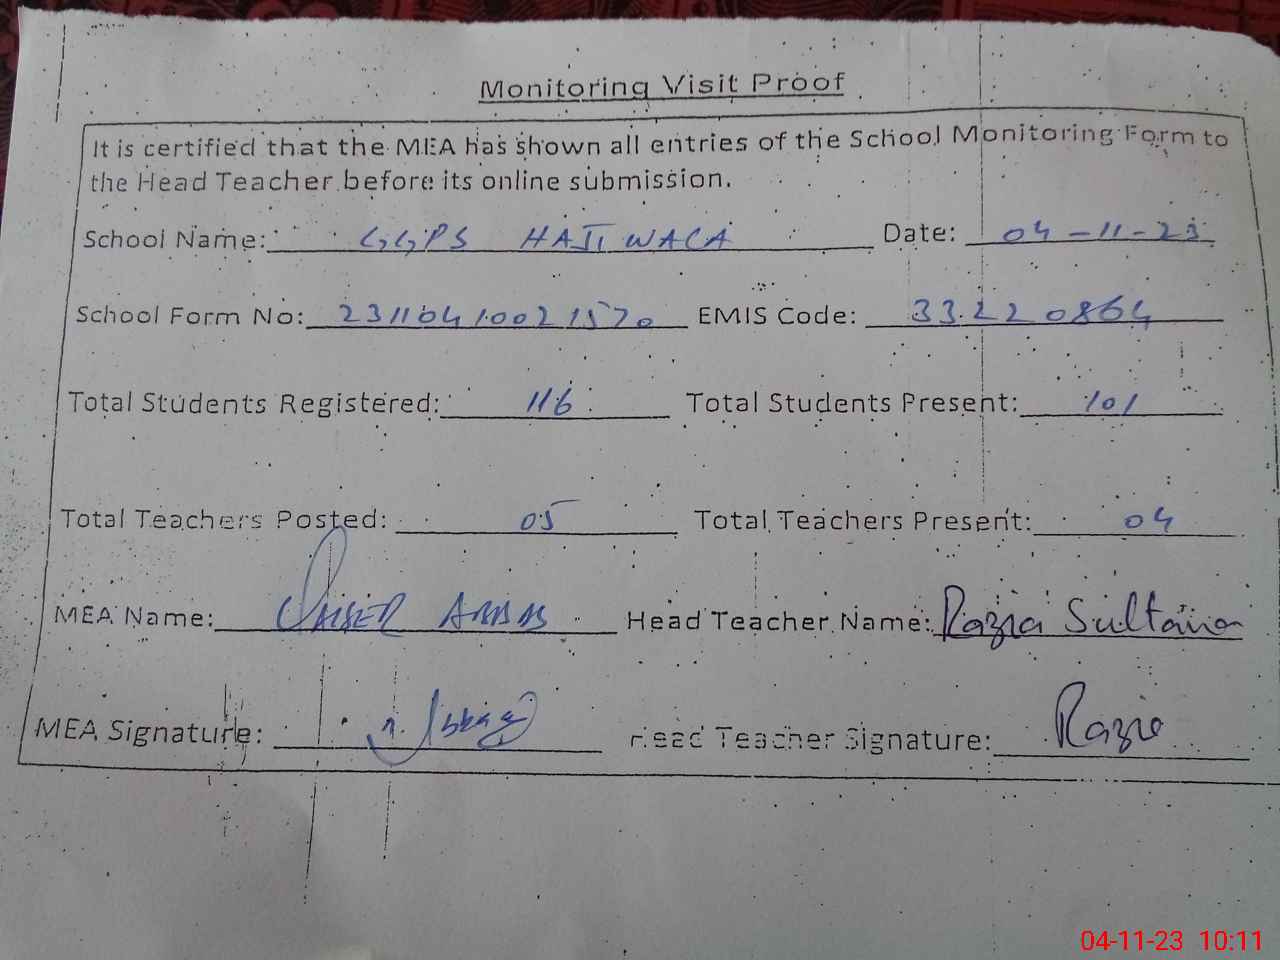 Monitoring Visit Proof
It is certified that the MEA has shown all entries of the School Monitoring Form to
the Head Teacher before its online submission.
School Name: GGPS HAJI WALA Date: 04-11-23
School Form No: 23110410021570 EMIS Code: 33220864
Total Students Registered: 116 Total Students Present: 101
Total Teachers Posted: 05 Total Teachers Present: 04
MEA Name: QAISER ABBAS Head Teacher Name: Razia Sultana
MEA Signature: Head Teacher Signature: Razia
04-11-23 10:11